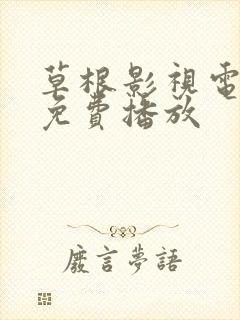 草根影視電
免費播放
廢言夢語